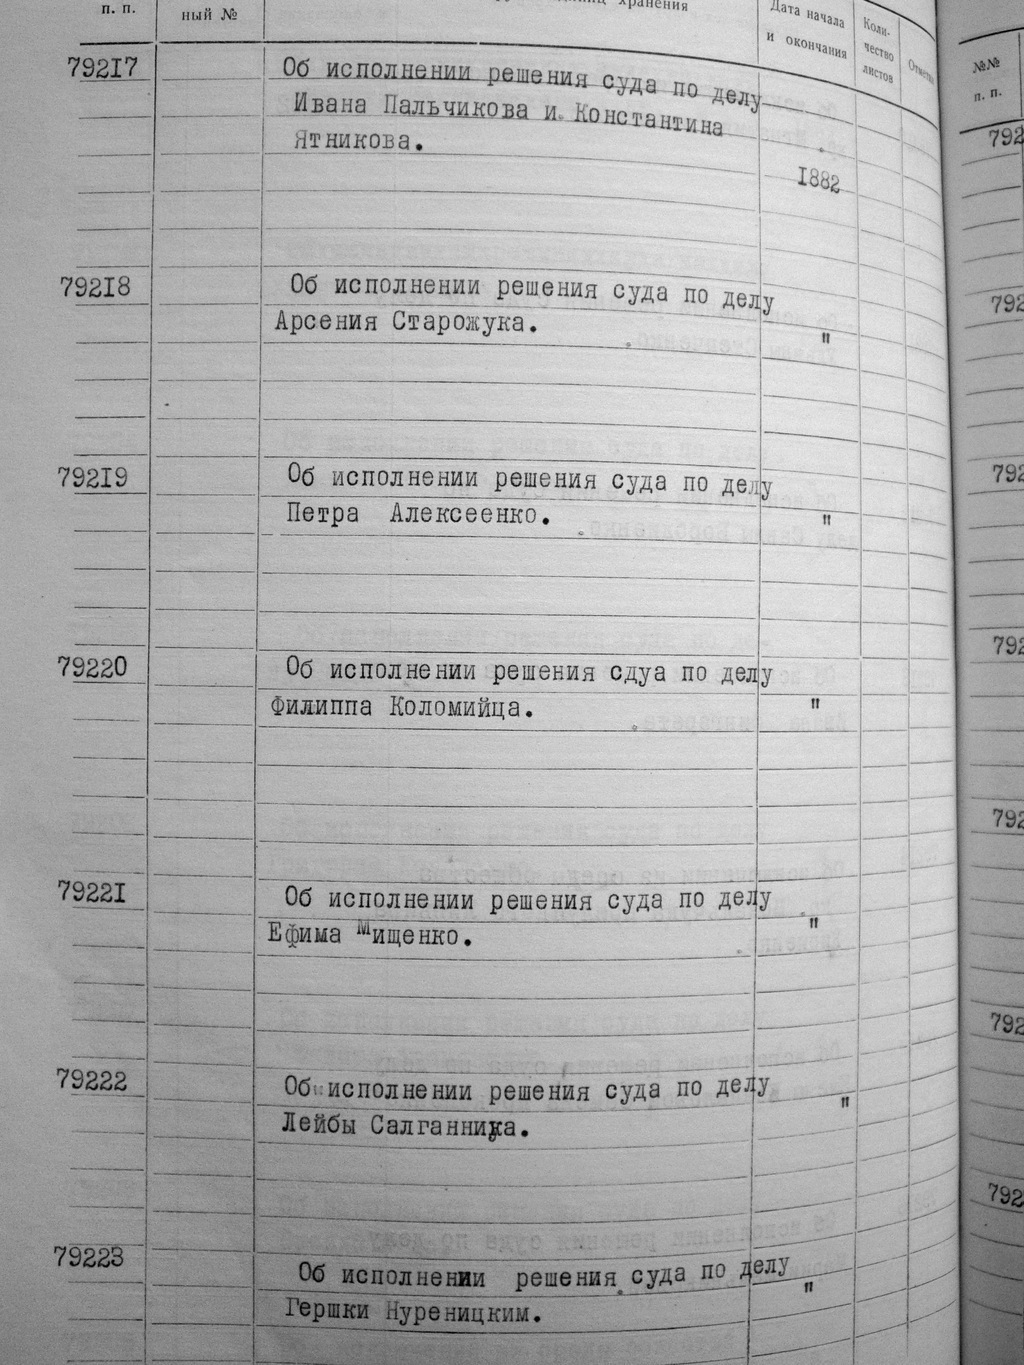 п. п.
ный №
хранения
Дата начала
и окончания
Коли-
чество
листов
№№
п. п.
79217
Об исполнении решения суда по делу
Ивана Пальчикова и Константина
Ятникова.
1882
79218
Об исполнении решения суда по делу
Арсения Старожука.
"
79219
Об исполнении решения суда по делу
Петра Алексеенко.
"
79220
Об исполнении решения сдуа по делу
Филиппа Коломийца.
"
79221
Об исполнении решения суда по делу
Ефима Мищенко.
"
79222
Об исполнении решения суда по делу
Лейбы Салганника.
"
79223
Об исполнении решения суда по делу
Гершки Нуреницким.
"